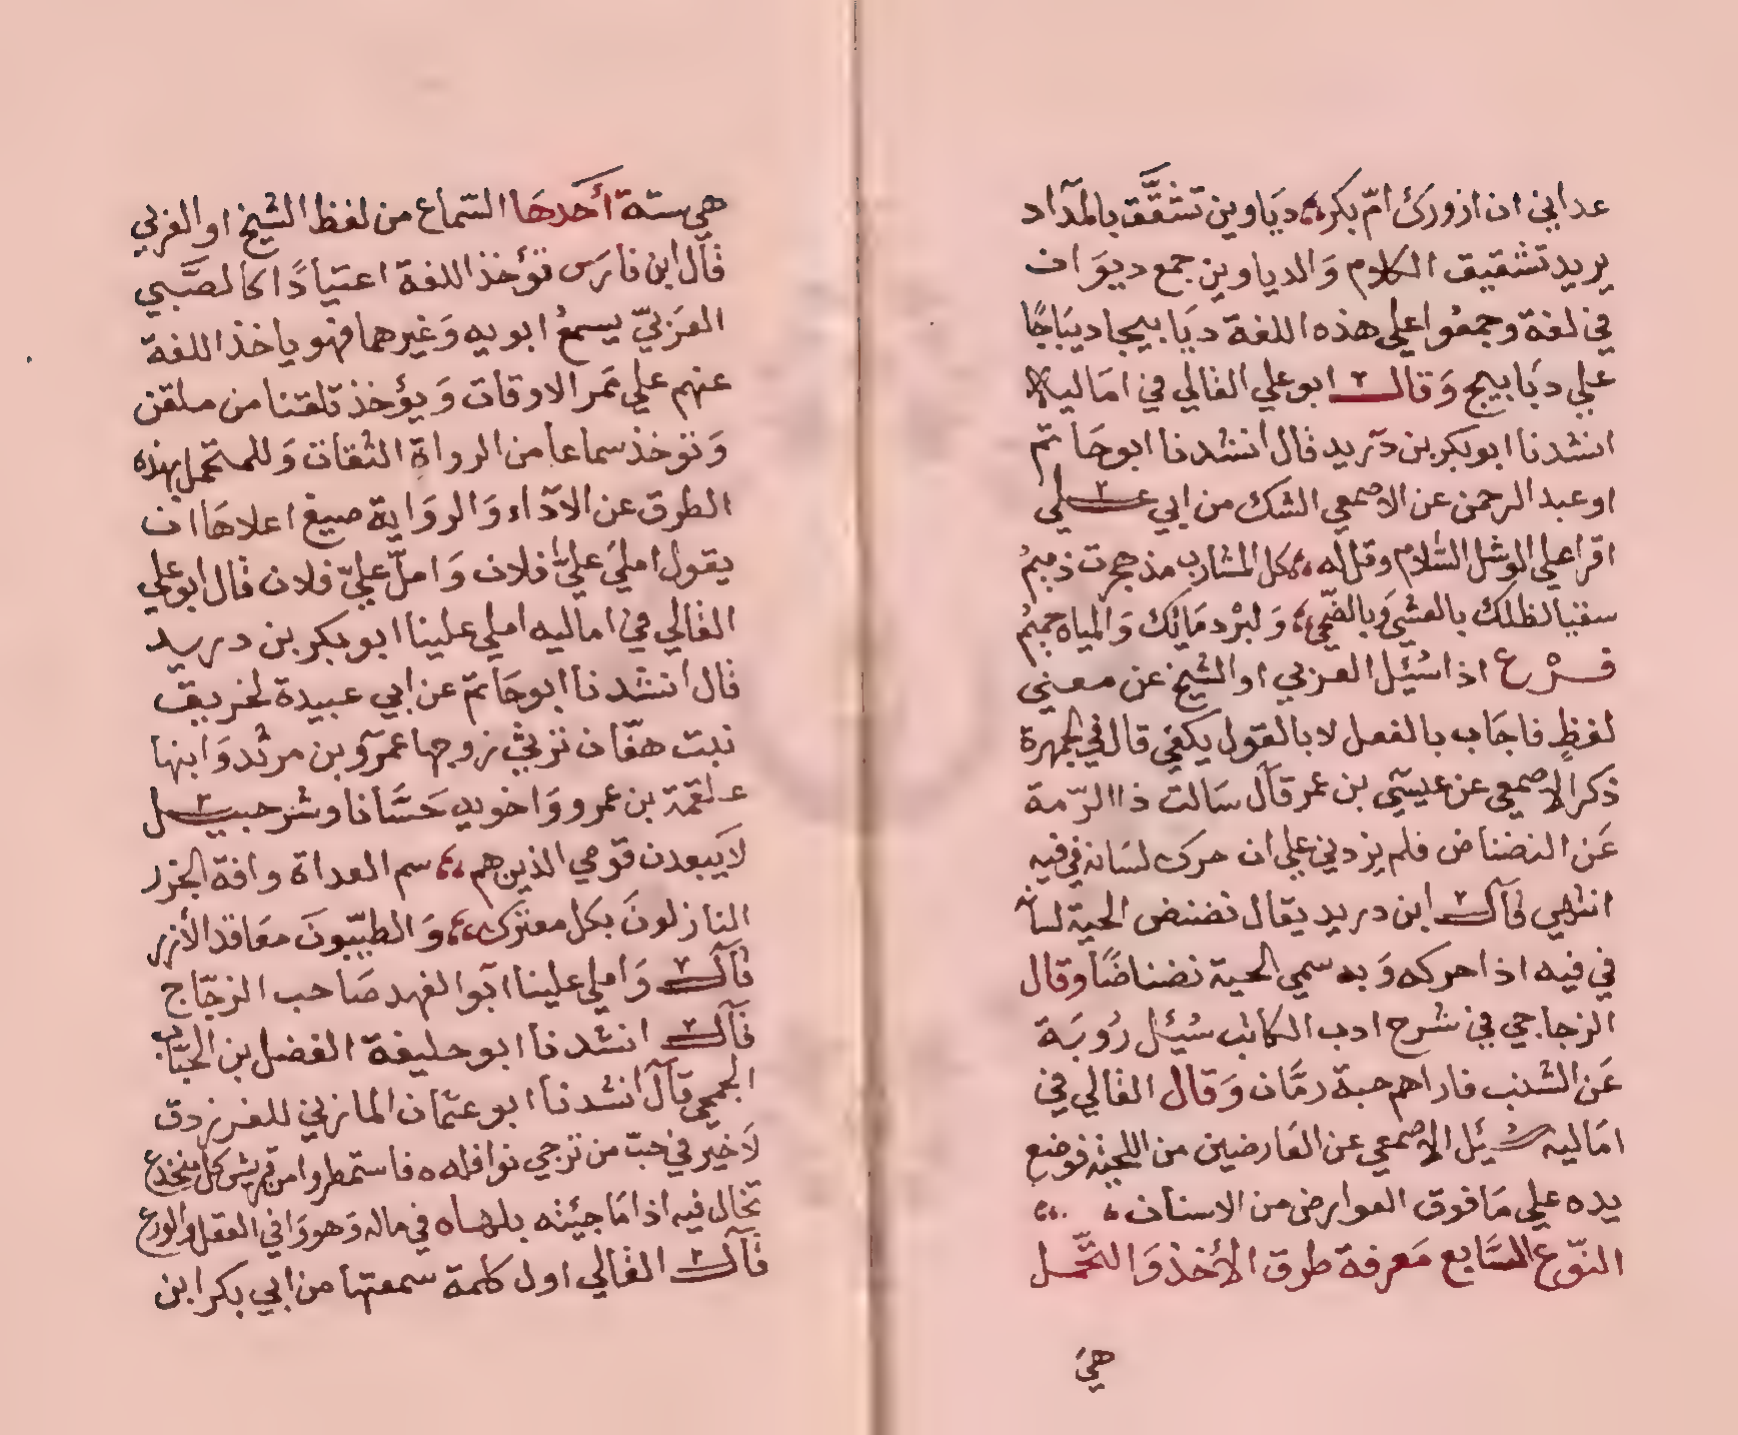 عداني ان ازورك امّ بكر دياوين تشقَّق بالمداد
يريد تشقيق الكلام والدياوين جمع ديوان
في لغة وجمعوا على هذه اللغة ديابيجا ديباجًا
علي دبابيج وَقال ابو علي القالي في اماليه
انشدنا ابو بكر بن دريد قال انشدنا ابو حاتم
او عبد الرحمن عن الاصمعي الشك من ابي علي
اقرا علي الوشل السَّلام وقل له كل المشارب مذ هجرت ذميمُ
سقيا لظلك بالعشيّ وبالضحي وَلبرْد مَائك وَالمياه حميمُ
فرْع اذا سُئل العربي او الشيخ عن معني
لفظٍ فاجَاب بالفعل لا بالقول يكفي قال في الجمهرة
ذكر الاصمعي عن عيسي بن عمر قال سَالت ذا الرّمة
عَن النضناض فلم يزدني علي ان حرك لسَانه في فيه
انتهي قال ابن دريد يقال نضنض الحية لسانه
في فيه اذا حركه وَبه سمي الحية نضناضًا وقال
الزجاجي في شرح ادب الكاتب سُئل رُوبَة
عَن الشنب فاراهم حبة رمَّان وَقال القالي في
امَاليه سُئل الاصمعي عن العَارضين من اللحية فوضع
يده علي مَا فوق العوارض من الاسنان
النّوع السَّابع مَعرفة طرق الأخذ وَالتحَّمل
هيَ
هي ستة أحَدهَا السَّماع من لفظ الشيخ او العربي
قال ابن فارس تؤخذ اللغة اعتيادًا كالصَّبي
العرَبيّ يسمعُ ابويه وَغيرهما فهو ياخذ اللغة
عنهم علي مَمر الاوقات وَيؤخذ تلقنا من ملقن
وَتوخذ سماعا من الرواة الثقات وَللمتحمل بهذه
الطرق عن الآداء وَالروَاية صيغ اعلاهَا ان
يقول امليَ عليَّ فلان وَاملّ عليّ فلان قال ابو علي
القالي في اماليه املي علينا ابو بكر بن دريد
قال انشدنا ابو حَاتم عن ابي عبيدة لخرنيق
بنت هفّان ترثي زوجها عمرو بن مرثد وَابنها
علقمة بن عمرو وَاخويه حَسَّانا وشرحبيل
لا يَبعدن قومي الذين هم سم العداة وافة الجزر
النازلونَ بكل معترك وَالطيّبونَ معَاقد الأزر
قال وَاملي علينا ابو الفهد صَاحب الزجّاج
قال انشدنا ابو حليفة الفضل بن الحبَّاب
الجمحي قال انشدنا ابو عثمان المازني للفرزدق
لاَ خير في حبّ من ترجي نوافله ه فاستمطروا من قريش كل منخدع
تخال فيه اذا مَا جيئته بلهاه في ماله وَهو وَافي العقل والورع
قال القالي اول كلمة سمعتها من ابي بكر ابن